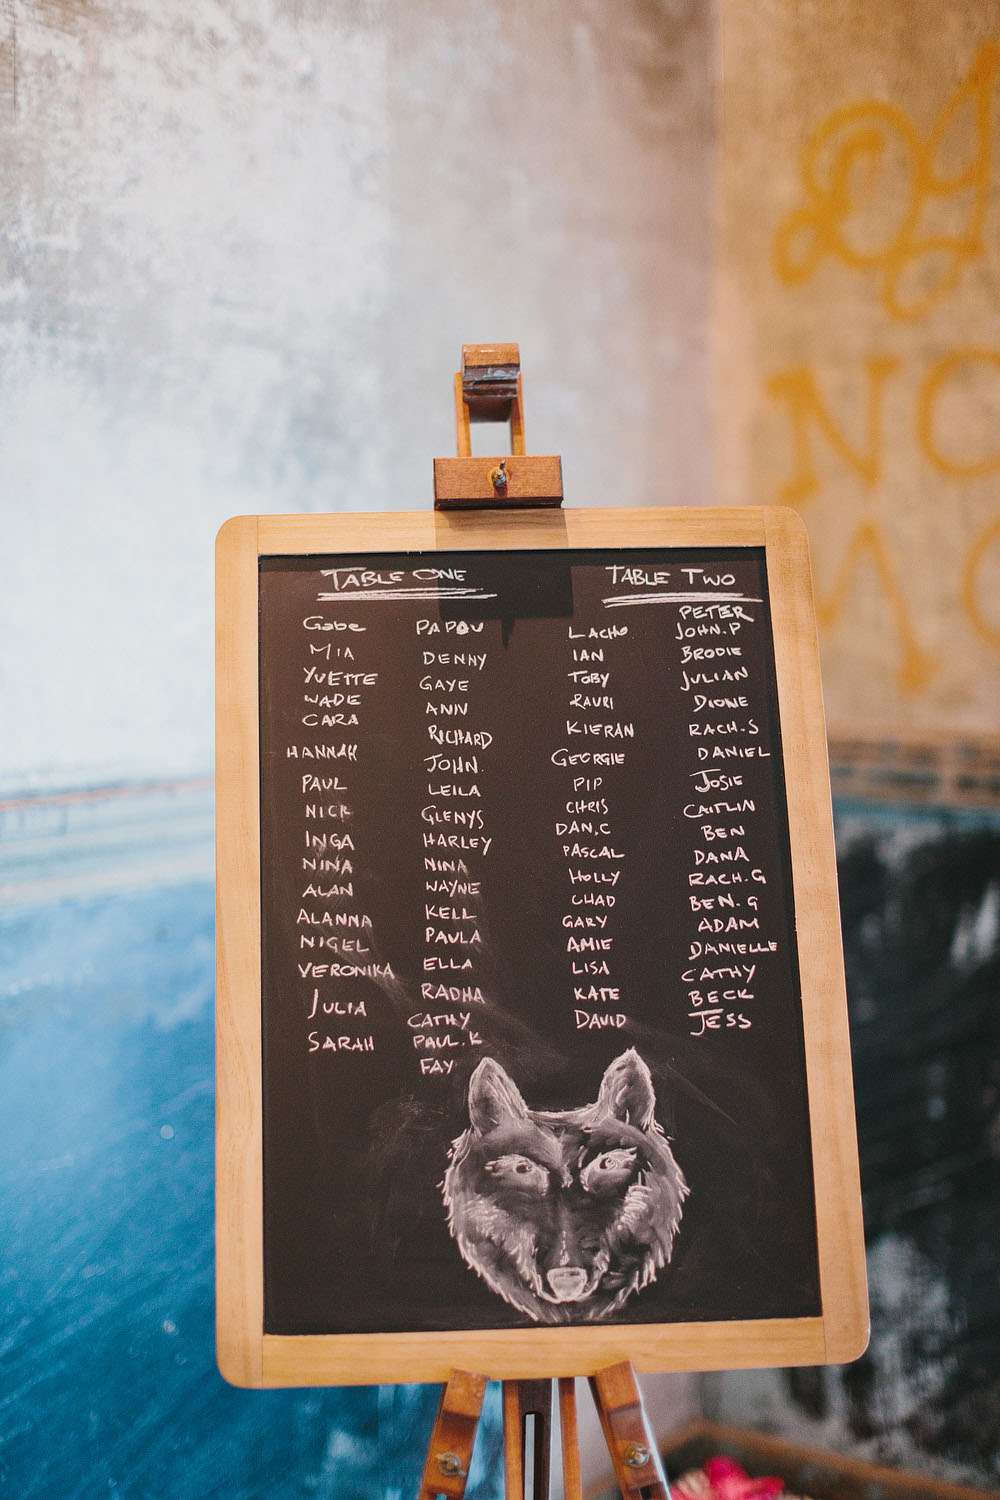 TABLE ONE
Gabe
MIA
YVETTE
WADE
CARA
HANNAH
PAUL
NICK
INGA
NINA
ALAN
ALANNA
NIGEL
VERONIKA
JULIA
SARAH
PAPOU
DENNY
GAYE
ANN
RICHARD
JOHN.
LEILA
GLENYS
HARLEY
NINA
WAYNE
KELL
PAULA
ELLA
RADHA
CATHY
PAUL.K
FAY
TABLE TWO
LACHO
IAN
TOBY
RAURI
KIERAN
GEORGIE
PIP
CHRIS
DAN.C
PASCAL
HOLLY
CHAD
GARY
AMIE
LISA
KATE
DAVID
PETER
JOHN.P
BRODIE
JULIAN
DIONE
RACH.S
DANIEL
JOSIE
CAITLIN
BEN
DANA
RACH.G
BEN.G
ADAM
DANIELLE
CATHY
BECK
JESS